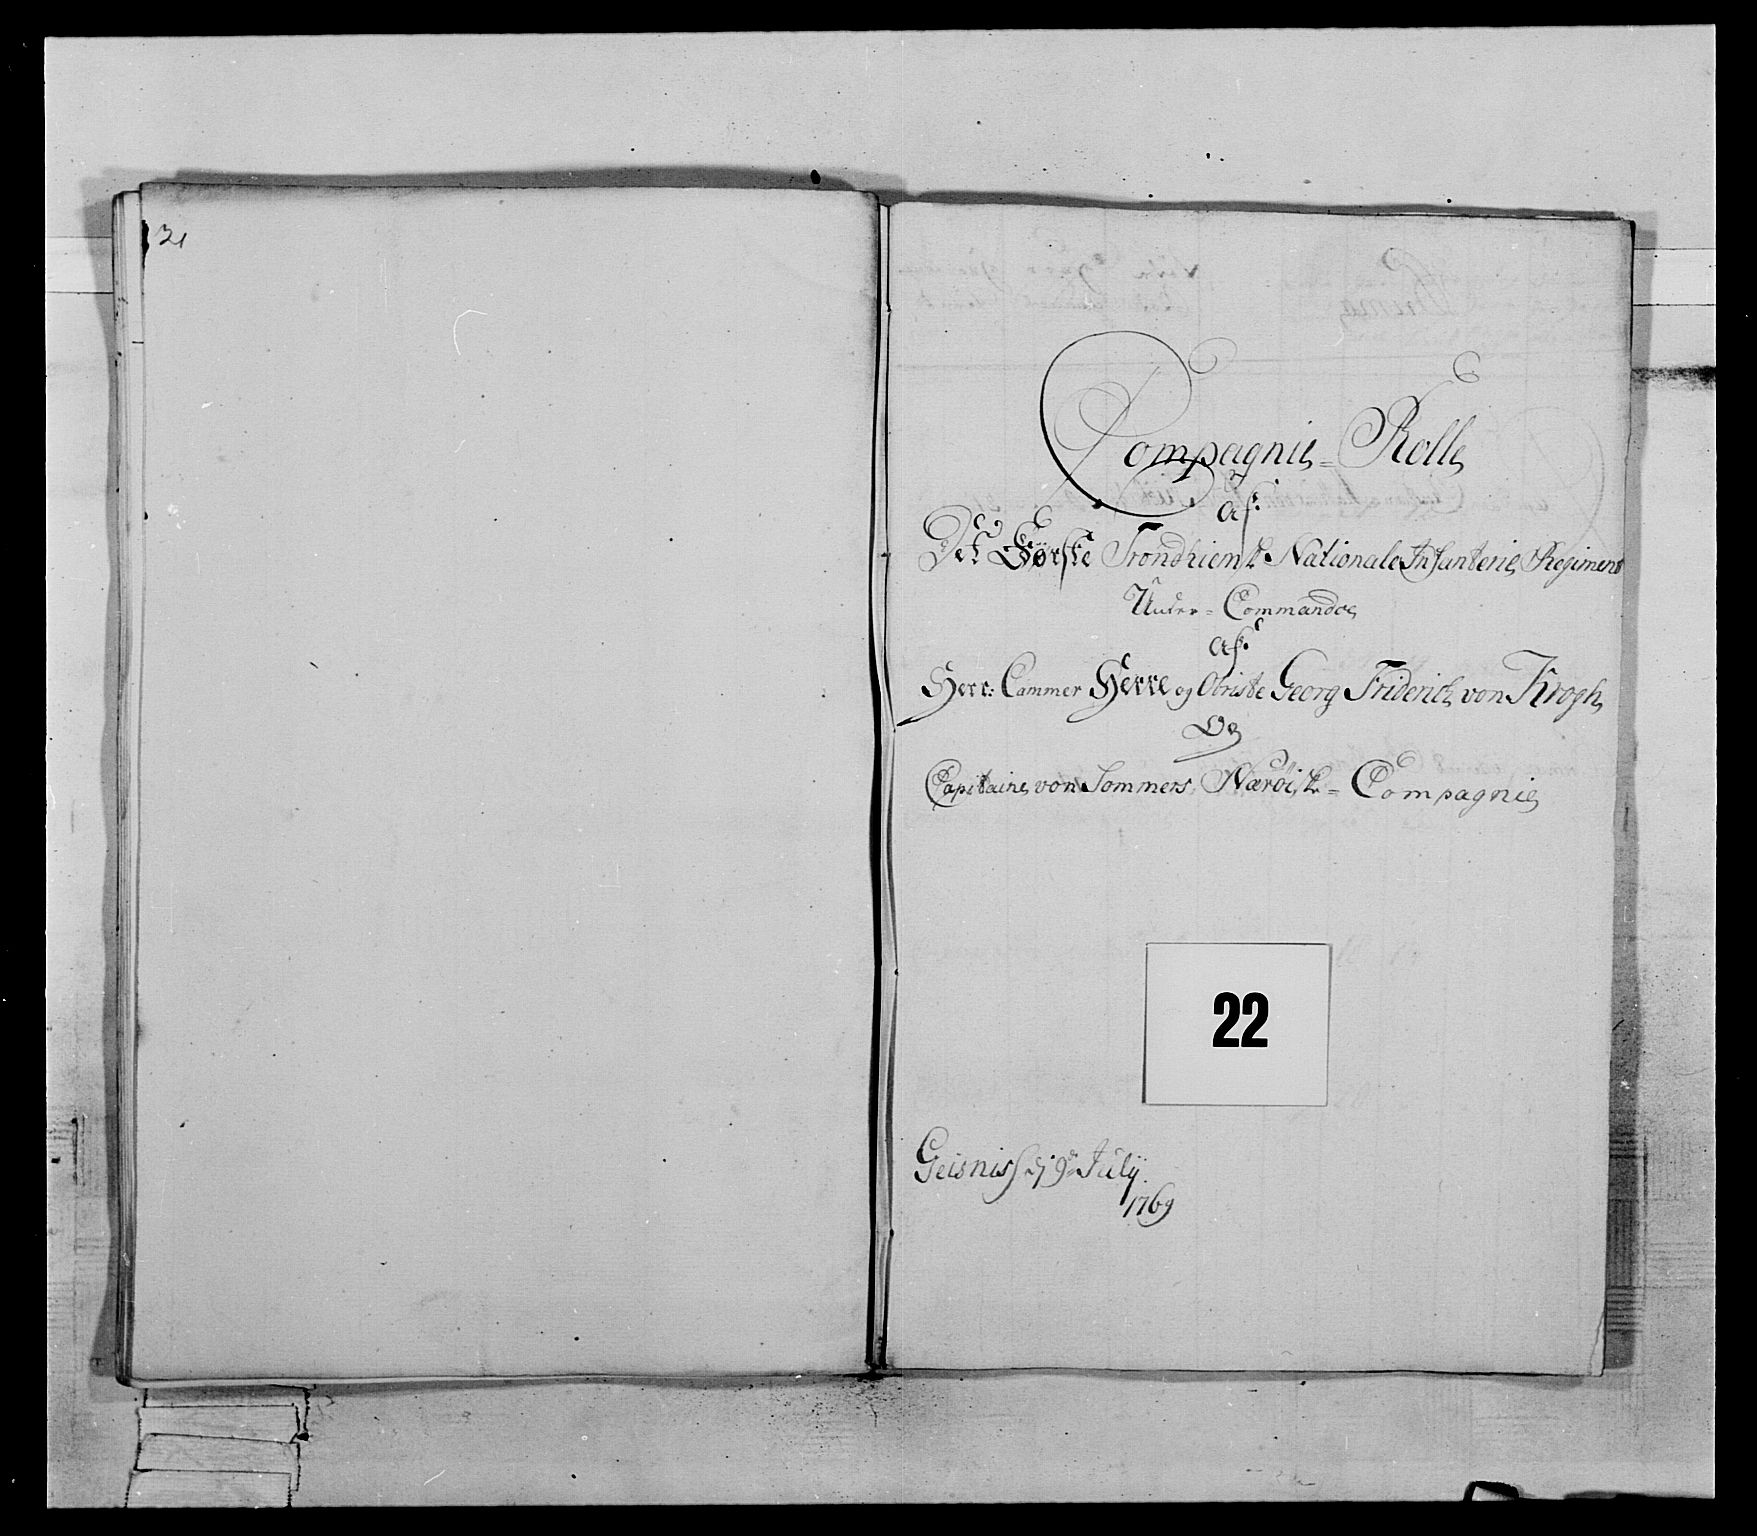 31
Compagnie = Rolle
af
Det Første Trondhiemsk Nationale Infanterie Regiment
Under = Commando
af
Herr: Cammer Herre og Obriste Georg Friderich von Krogh
Og
Capitaine von Sommers Nærøisk = Compagnie
22
Geisnis d 9de Julÿ
1769